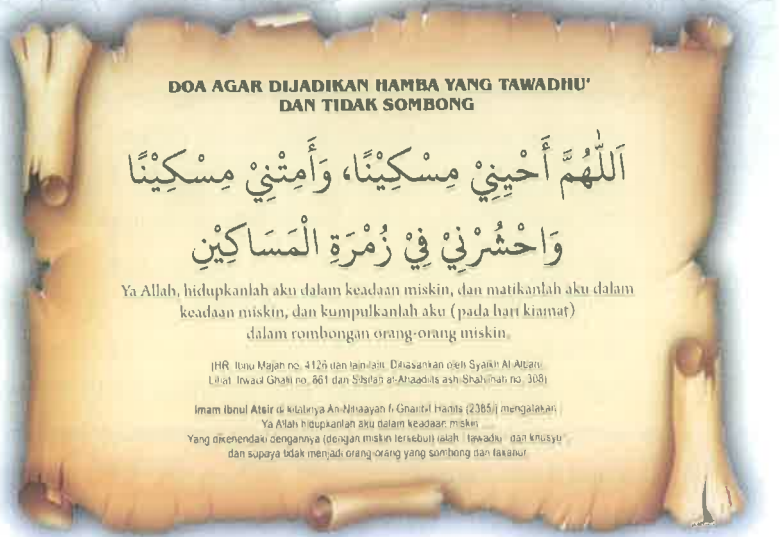 DOA AGAR DIJADIKAN HAMBA YANG TAWADHU'
DAN TIDAK SOMBONG
اَللّٰهُمَّ أَحْيِنِيْ مِسْكِيْنًا، وَأَمِتْنِيْ مِسْكِيْنًا
وَاحْشُرْنِيْ فِيْ زُمْرَةِ الْمَسَاكِيْنِ
Ya Allah, hidupkanlah aku dalam keadaan miskin, dan matikanlah aku dalam
keadaan miskin, dan kumpulkanlah aku (pada hari kiamat)
dalam rombongan orang-orang miskin.
(HR. Ibnu Majah no. 4126 dan lain-lain. Dihasankan oleh Syaikh Al-Albani
Lihat Irwaul Ghalil no. 861 dan Silsilah al-Ahaadiits ash-Shahiihah no. 308)
Imam Ibnul Atsir di kitabnya An-Nihaayah fi Ghariibil Hadits (2385) mengatakan
Ya Allah hidupkanlah aku dalam keadaan miskin
Yang dikehendaki dengannya (dengan miskin tersebut) ialah tawadlu' dan khusyu'
dan supaya tidak menjadi orang-orang yang sombong dan takabur